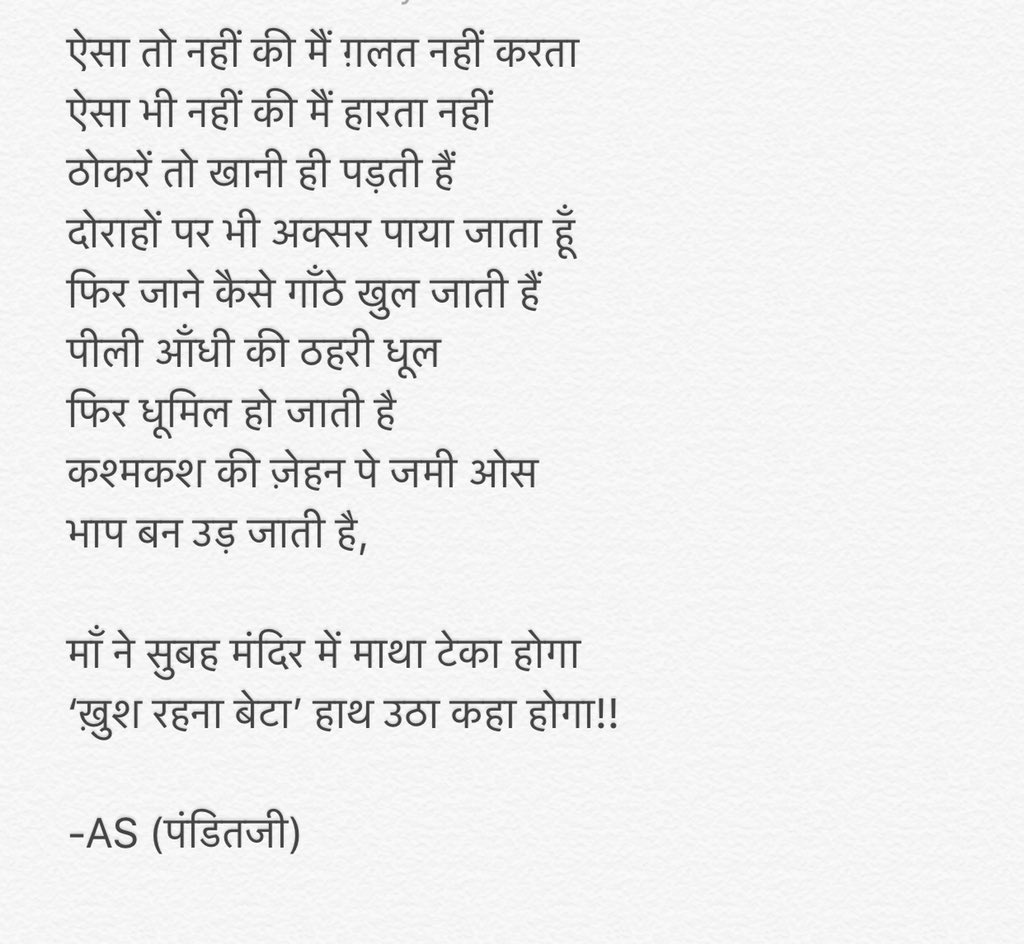 ऐसा तो नहीं की मैं ग़लत नहीं करता
ऐसा भी नहीं की मैं हारता नहीं
ठोकरें तो खानी ही पड़ती हैं
दोराहों पर भी अक्सर पाया जाता हूँ
फिर जाने कैसे गाँठे खुल जाती हैं
पीली आँधी की ठहरी धूल
फिर धूमिल हो जाती है
कश्मकश की ज़ेहन पे जमी ओस
भाप बन उड़ जाती है,
माँ ने सुबह मंदिर में माथा टेका होगा
‘ख़ुश रहना बेटा’ हाथ उठा कहा होगा!!
-AS (पंडितजी)